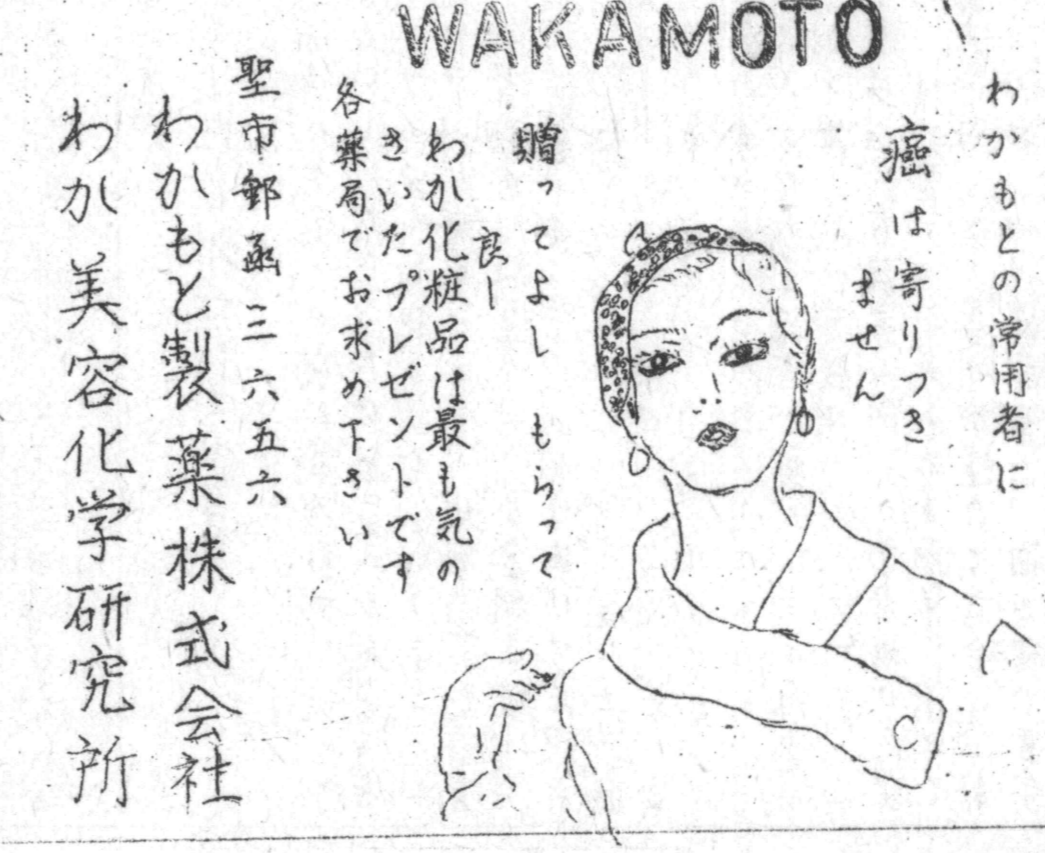 WAKAMOTO
わかもとの常用者に
癌は寄りつき
ません
贈ってよし もらって
良し
わか化粧品は最も気の
きいたプレゼントです
各薬局でお求め下さい
聖市郵函三六五六
わかもと製薬株式会社
わか美容化学研究所
C